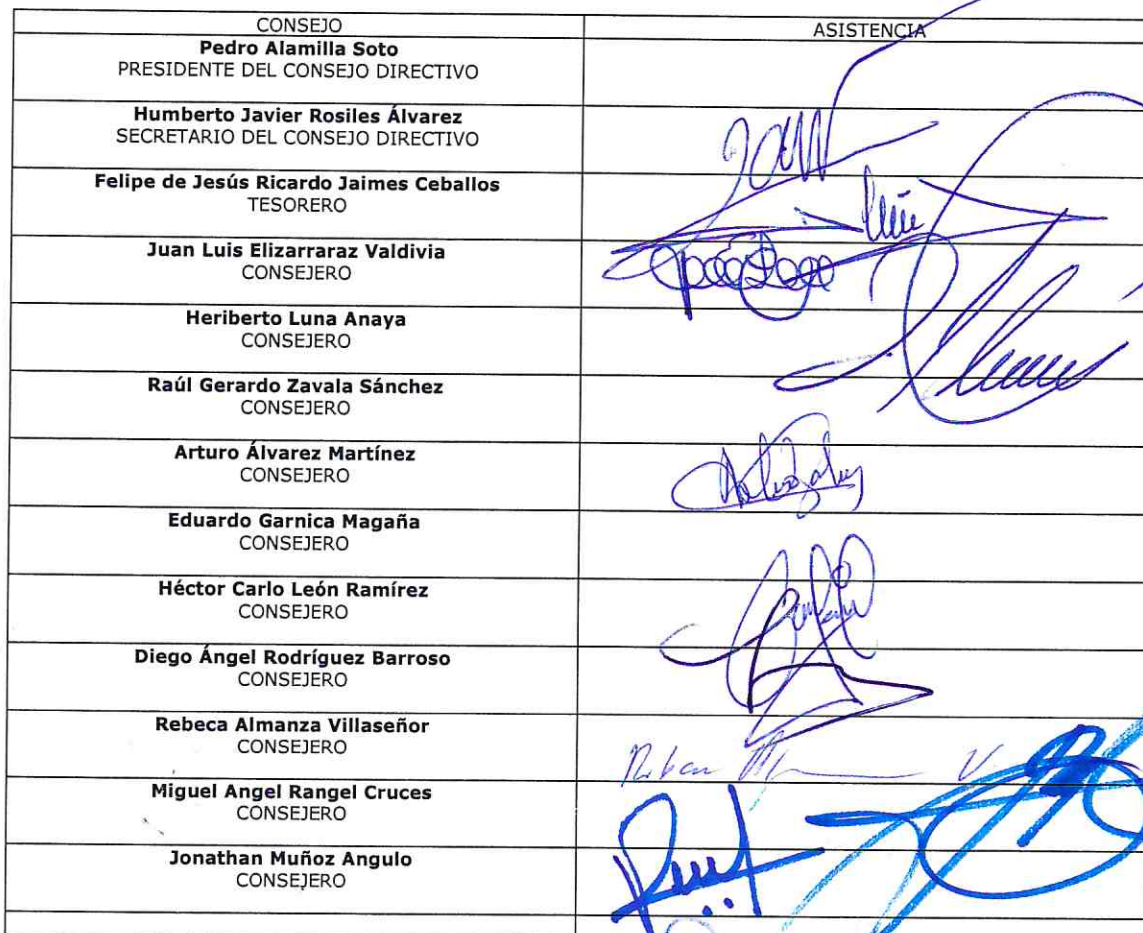 CONSEJO ASISTENCIA
Pedro Alamilla Soto
PRESIDENTE DEL CONSEJO DIRECTIVO
Humberto Javier Rosiles Álvarez
SECRETARIO DEL CONSEJO DIRECTIVO
Felipe de Jesús Ricardo Jaimes Ceballos
TESORERO
Juan Luis Elizarraraz Valdivia
CONSEJERO
Heriberto Luna Anaya
CONSEJERO
Raúl Gerardo Zavala Sánchez
CONSEJERO
Arturo Álvarez Martínez
CONSEJERO
Eduardo Garnica Magaña
CONSEJERO
Héctor Carlo León Ramírez
CONSEJERO
Diego Ángel Rodríguez Barroso
CONSEJERO
Rebeca Almanza Villaseñor
CONSEJERO
Miguel Angel Rangel Cruces
CONSEJERO
Jonathan Muñoz Angulo
CONSEJERO